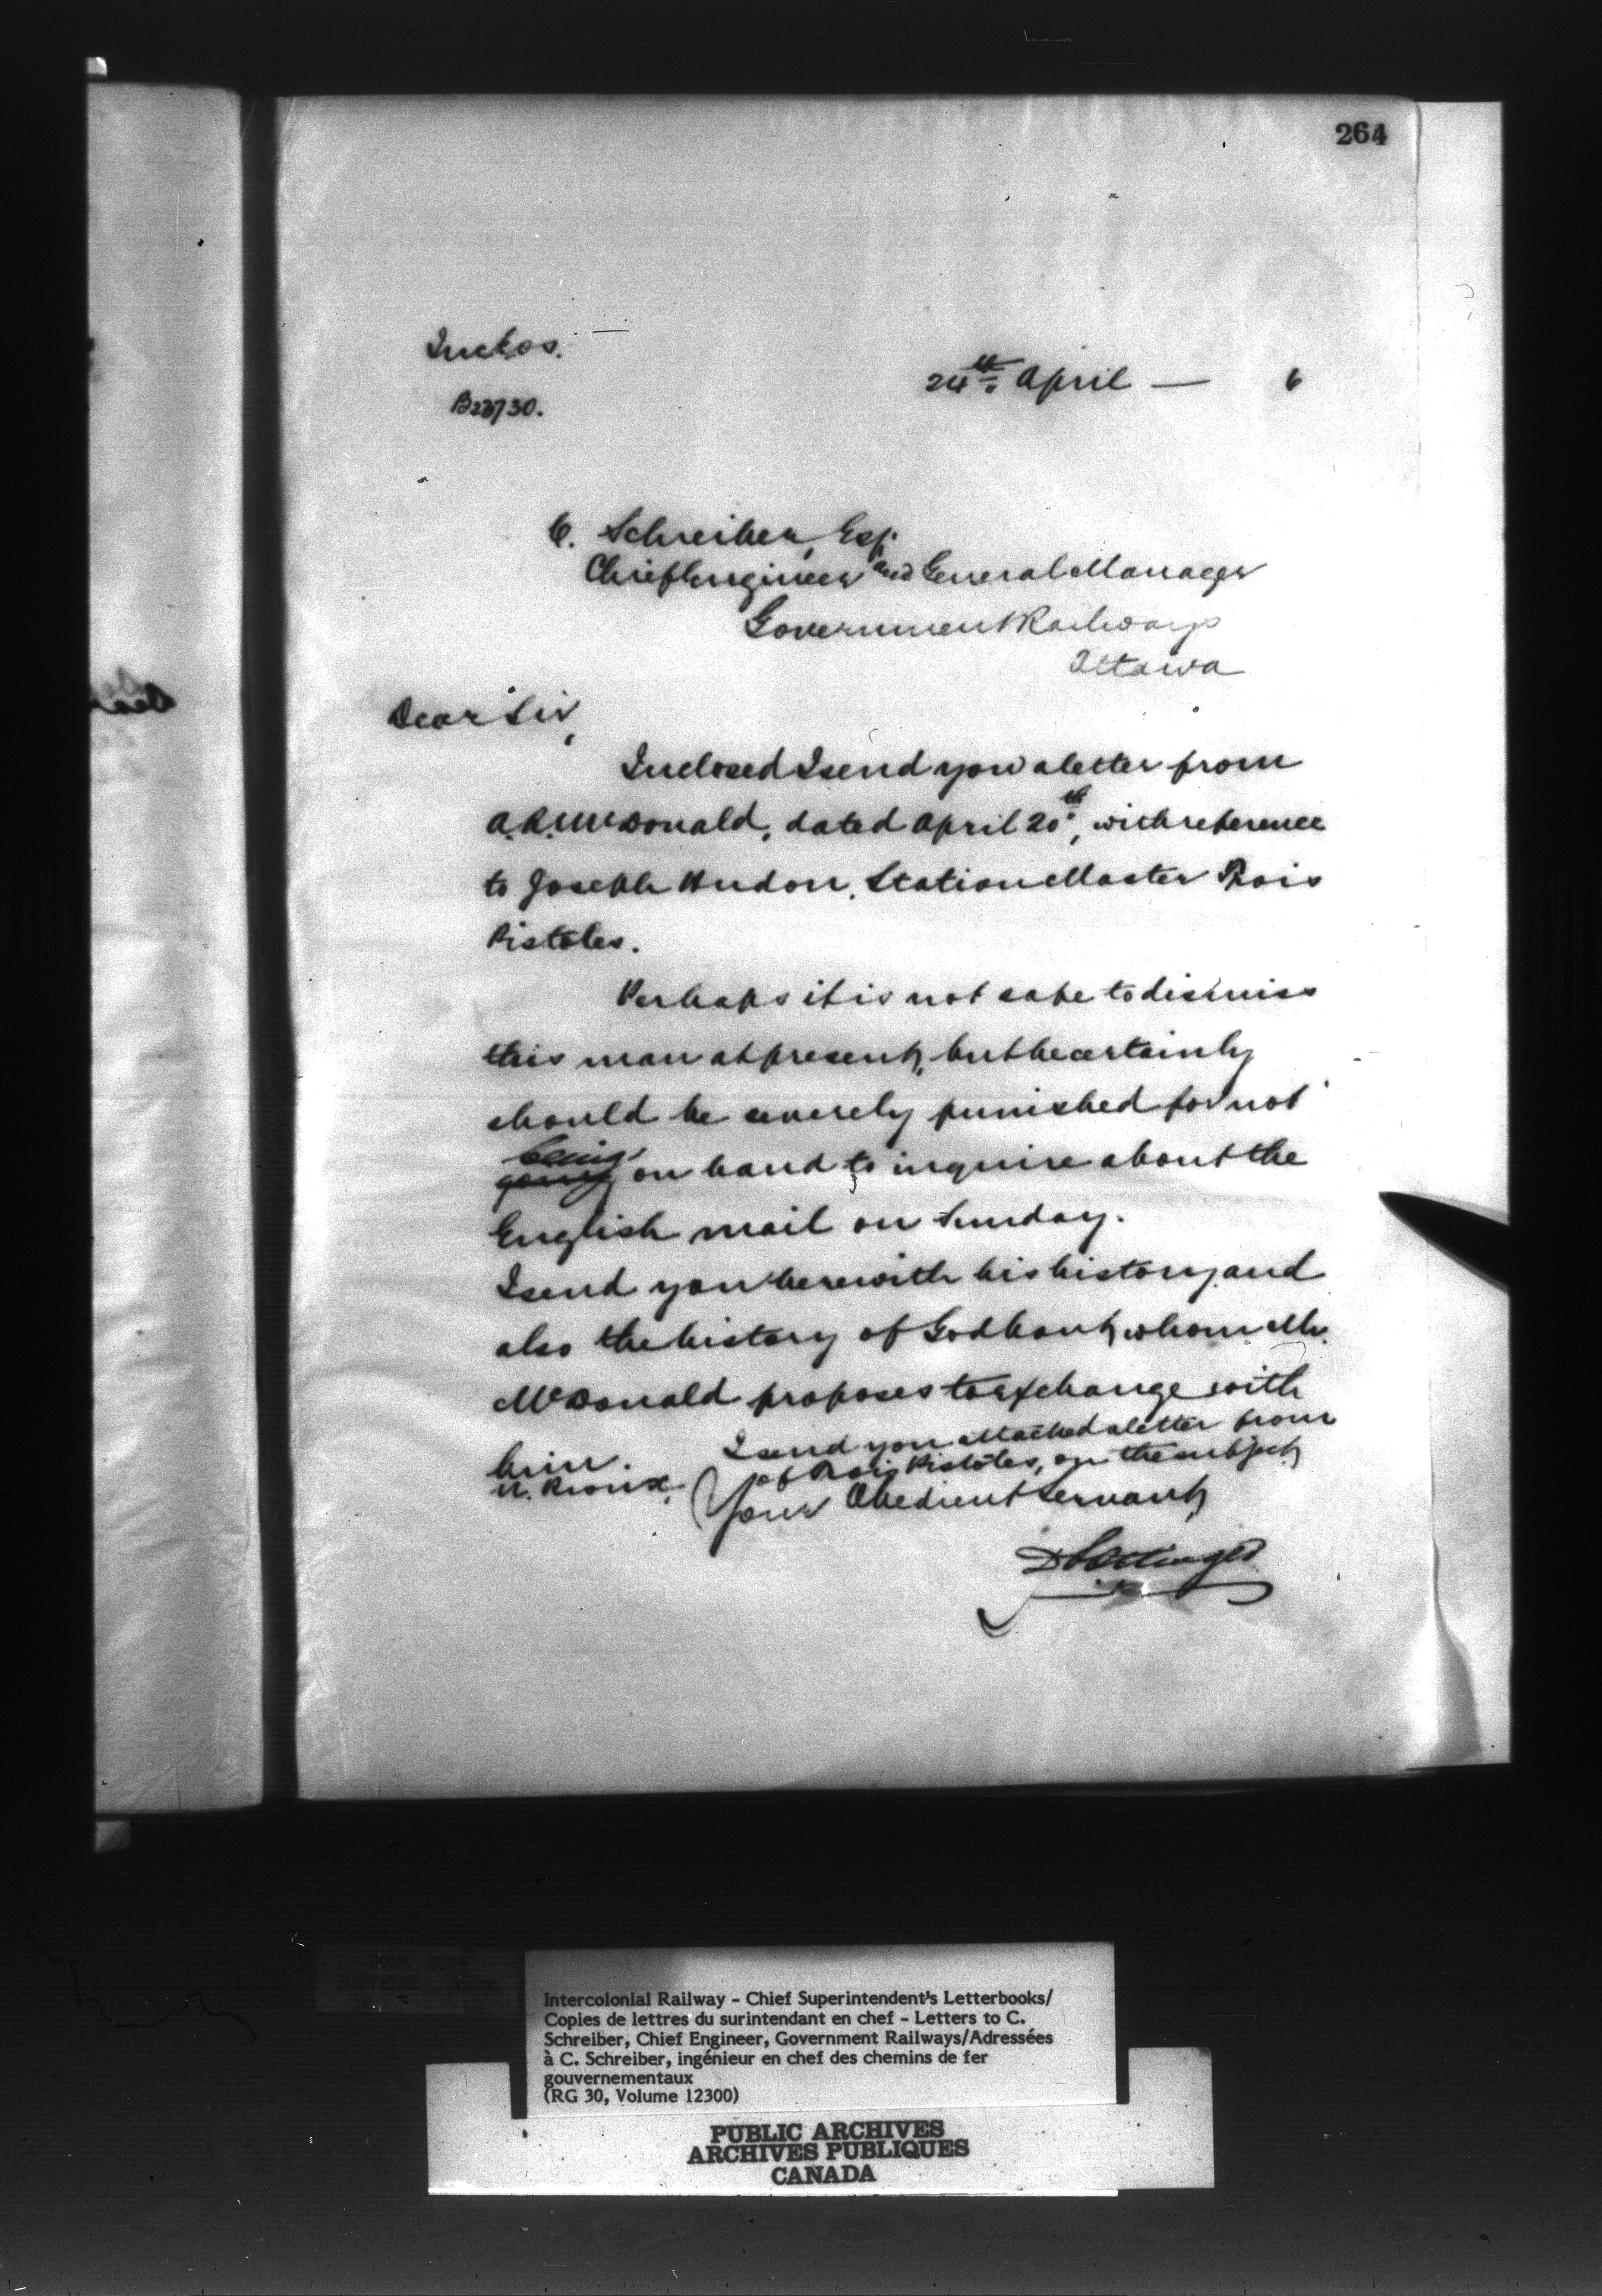 264
Inclos.
24th April — 6
B23730.
C. Schreiber, Esq.
Chief Engineer and General Manager
Government Railways
Ottawa
Dear Sir,
Inclosed I send you a letter from
A.R. McDonald, dated April 20th, with reference
to Joseph Hudon, Station Master Trois
Pistoles.
Perhaps it is not safe to dismiss
this man at present, but he certainly
should be severely punished for not
being
going on hand to inquire about the
English mail on Sunday.
I send you herewith his history and
also the history of Godbout, whom Mr.
McDonald proposes to exchange with
him. I send you attached a letter from
N. Rioux, of Trois Pistoles, on the subject
Your Obedient Servant,
D Pottinger
Intercolonial Railway - Chief Superintendent's Letterbooks/
Copies de lettres du surintendant en chef - Letters to C.
Schreiber, Chief Engineer, Government Railways/Adressées
à C. Schreiber, ingénieur en chef des chemins de fer
gouvernementaux
(RG 30, Volume 12300)
PUBLIC ARCHIVES
ARCHIVES PUBLIQUES
CANADA